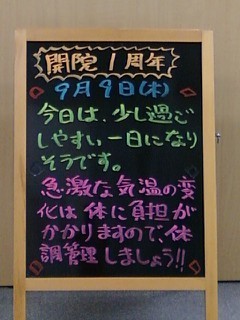 開院1周年
9月9日(木)
今日は、少し過ご
しやすい一日になり
そうです。
急激な気温の変
化は体に負担が
かかりますので、体
調管理しましょう!!